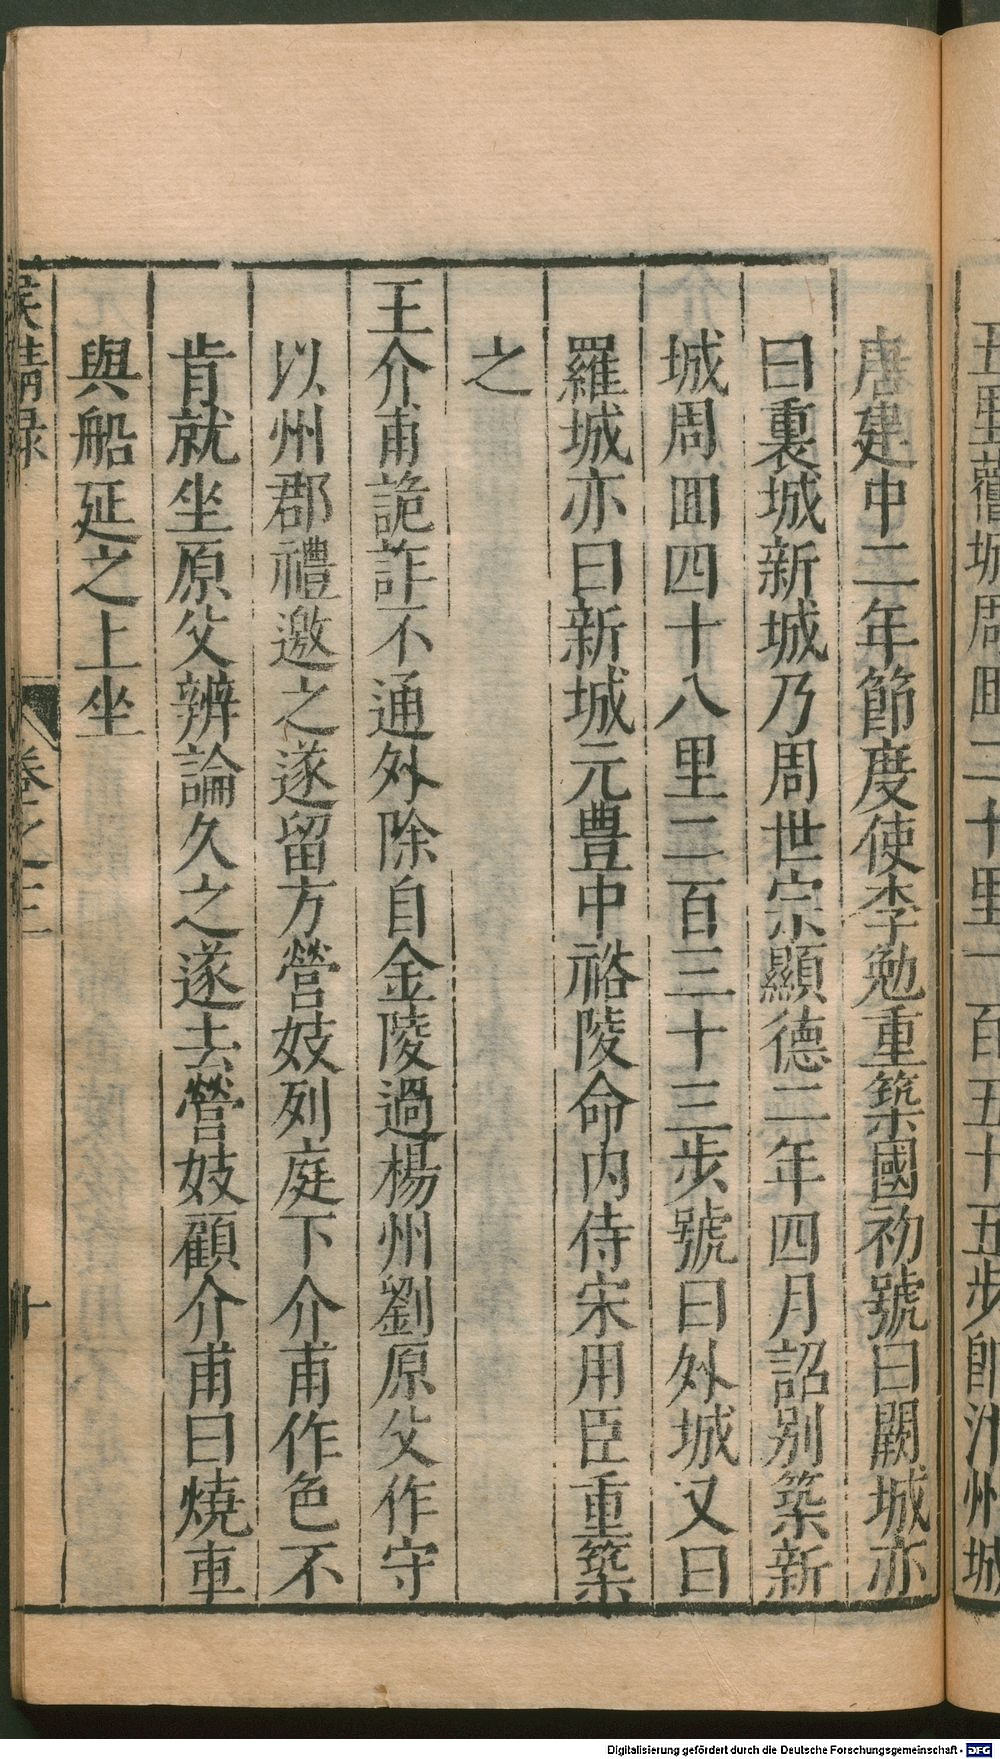 五里舊城周囬二十里一百五十五步卽汴州城
唐建中二年節度使李勉重築國初號曰闕城亦
曰裏城新城乃周世宗顯德二年四月詔别築新
城周囬四十八里二百三十三步號曰外城又曰
羅城亦曰新城元豊中裕陵命内侍宋用臣重築
之
王介甫詭詐不通外除自金陵過楊州劉原父作守
以州郡禮邀之遂留方營妓列庭下介甫作色不
肯就坐原父辨論久之遂去營妓顧介甫曰燒車
與船延之上坐
侯鯖録
卷之三
十
Digitalisierung gefördert durch die Deutsche Forschungsgemeinschaft - DFG